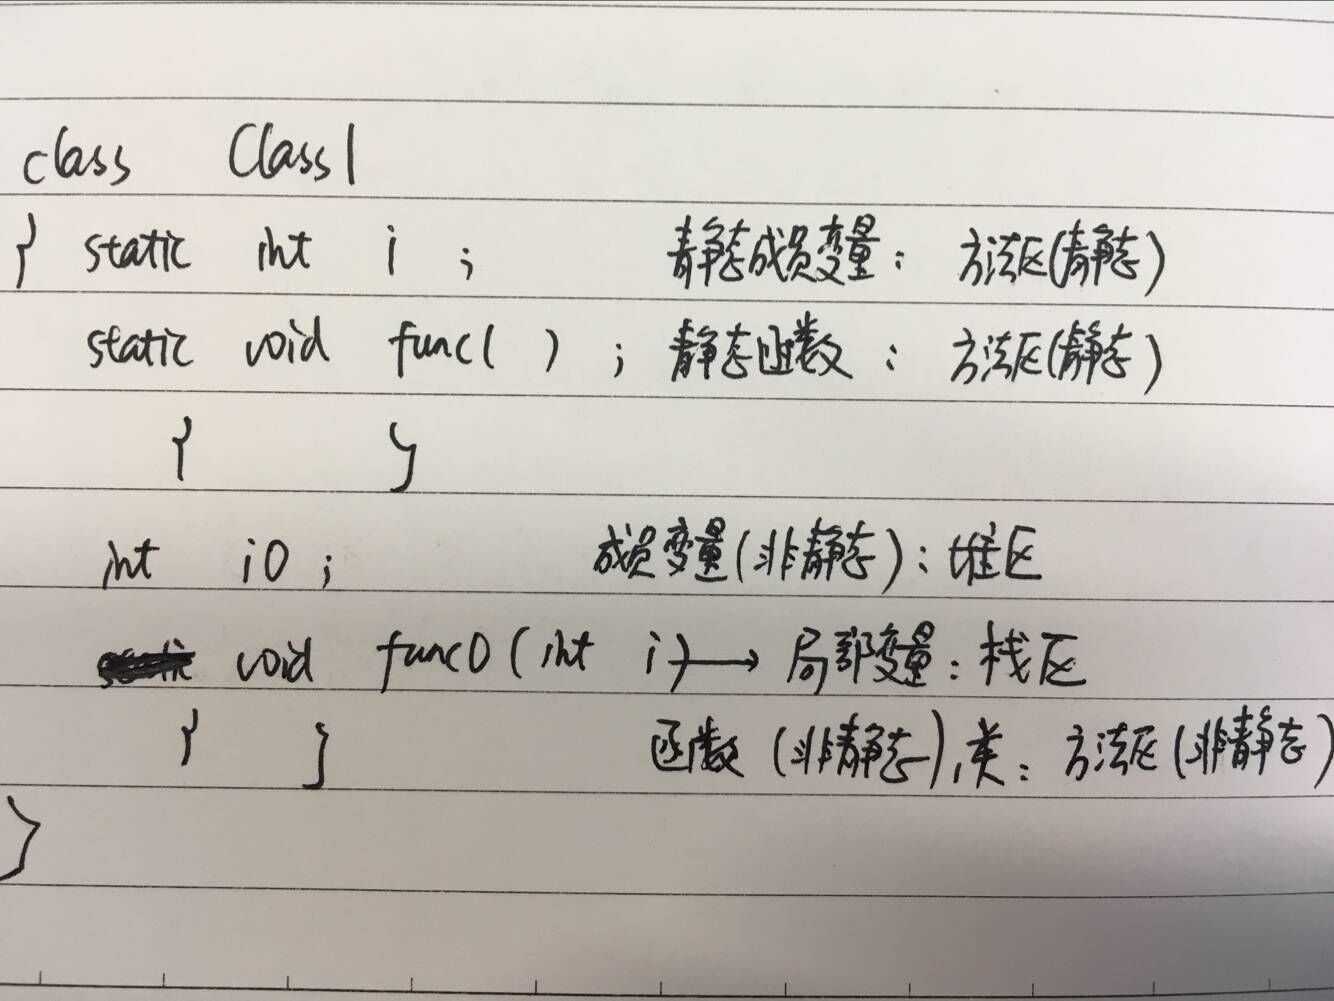 class Class1
{ static int i ; 静态成员变量: 方法区(静态)
static void func( ) ; 静态函数: 方法区(静态)
{ }
int i0 ; 成员变量(非静态): 堆区
void func0(int i) → 局部变量: 栈区
{ } 函数(非静态),类: 方法区(非静态)
}